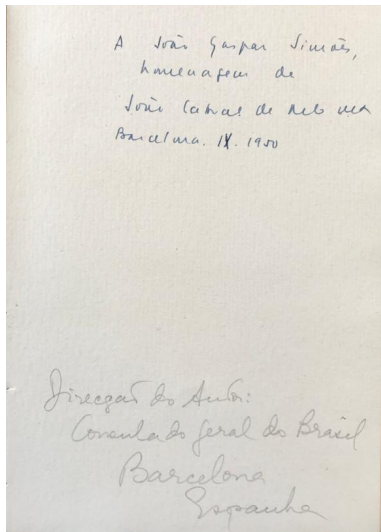 A João Gaspar Simões,
homenagem de
João Cabral de Melo Neto
Barcelona. IX. 1950
Direcção do Autor:
Consulado Geral do Brasil
Barcelona
Espanha